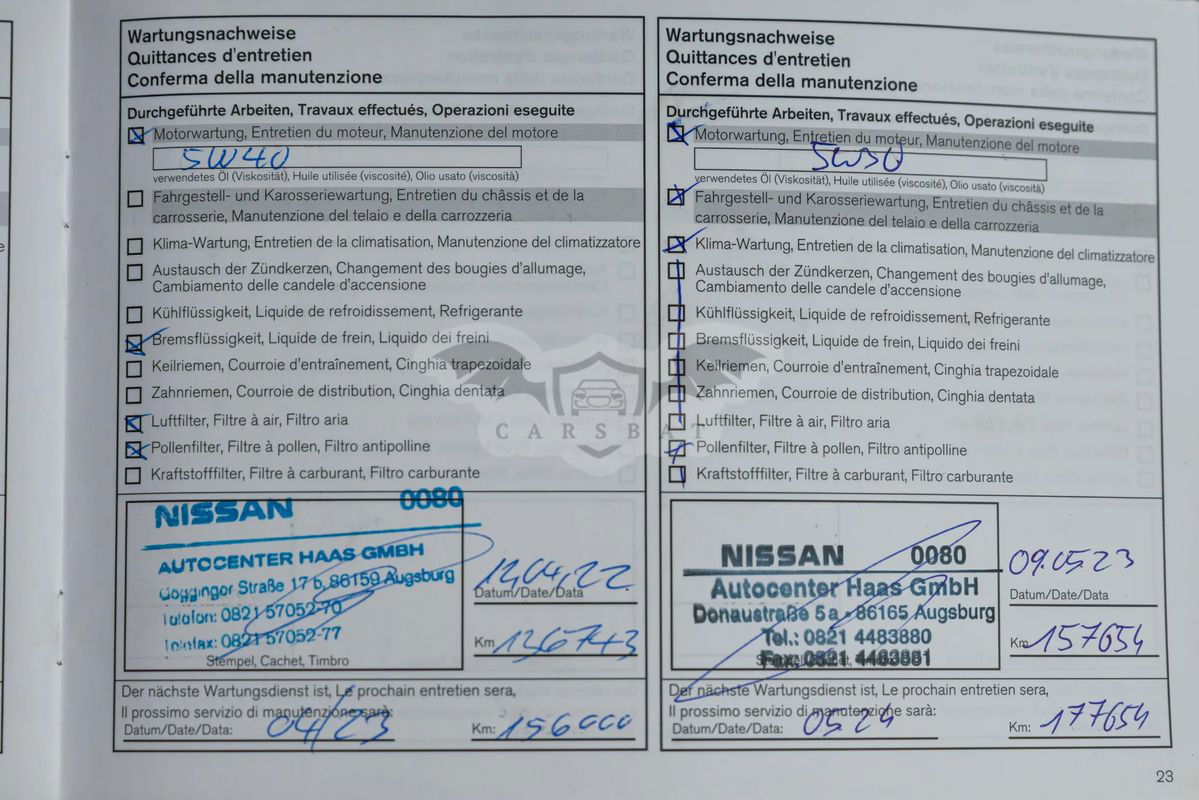 Wartungsnachweise
Quittances d'entretien
Conferma della manutenzione
Durchgeführte Arbeiten, Travaux effectués, Operazioni eseguite
Motorwartung, Entretien du moteur, Manutenzione del motore
5W40
verwendetes Öl (Viskosität), Huile utilisée (viscosité), Olio usato (viscosità)
Fahrgestell- und Karosseriewartung, Entretien du châssis et de la
carrosserie, Manutenzione del telaio e della carrozzeria
Klima-Wartung, Entretien de la climatisation, Manutenzione del climatizzatore
Austausch der Zündkerzen, Changement des bougies d'allumage,
Cambiamento delle candele d'accensione
Kühlflüssigkeit, Liquide de refroidissement, Refrigerante
Bremsflüssigkeit, Liquide de frein, Liquido dei freini
Keilriemen, Courroie d'entraînement, Cinghia trapezoidale
Zahnriemen, Courroie de distribution, Cinghia dentata
Luftfilter, Filtre à air, Filtro aria
Pollenfilter, Filtre à pollen, Filtro antipolline
Kraftstofffilter, Filtre à carburant, Filtro carburante
NISSAN 0080
AUTOCENTER HAAS GMBH
Gögginger Straße 17 b, 86159 Augsburg
Telefon: 0821 57052-70
Telefax: 0821 57052-77
Stempel, Cachet, Timbro
12.04.22
Datum/Date/Data
Km 136743
Der nächste Wartungsdienst ist, Le prochain entretien sera,
Il prossimo servizio di manutenzione sarà:
Datum/Date/Data: 04/23 Km: 156000
Wartungsnachweise
Quittances d'entretien
Conferma della manutenzione
Durchgeführte Arbeiten, Travaux effectués, Operazioni eseguite
Motorwartung, Entretien du moteur, Manutenzione del motore
5W30
verwendetes Öl (Viskosität), Huile utilisée (viscosité), Olio usato (viscosità)
Fahrgestell- und Karosseriewartung, Entretien du châssis et de la
carrosserie, Manutenzione del telaio e della carrozzeria
Klima-Wartung, Entretien de la climatisation, Manutenzione del climatizzatore
Austausch der Zündkerzen, Changement des bougies d'allumage,
Cambiamento delle candele d'accensione
Kühlflüssigkeit, Liquide de refroidissement, Refrigerante
Bremsflüssigkeit, Liquide de frein, Liquido dei freini
Keilriemen, Courroie d'entraînement, Cinghia trapezoidale
Zahnriemen, Courroie de distribution, Cinghia dentata
Luftfilter, Filtre à air, Filtro aria
Pollenfilter, Filtre à pollen, Filtro antipolline
Kraftstofffilter, Filtre à carburant, Filtro carburante
NISSAN 0080
Autocenter Haas GmbH
Donaustraße 5a • 86165 Augsburg
Tel.: 0821 4483880
Fax: 0821 4483881
09.05.23
Datum/Date/Data
Km 157654
Der nächste Wartungsdienst ist, Le prochain entretien sera,
Il prossimo servizio di manutenzione sarà:
Datum/Date/Data: 05.24 Km: 177654
CARSBAT
23